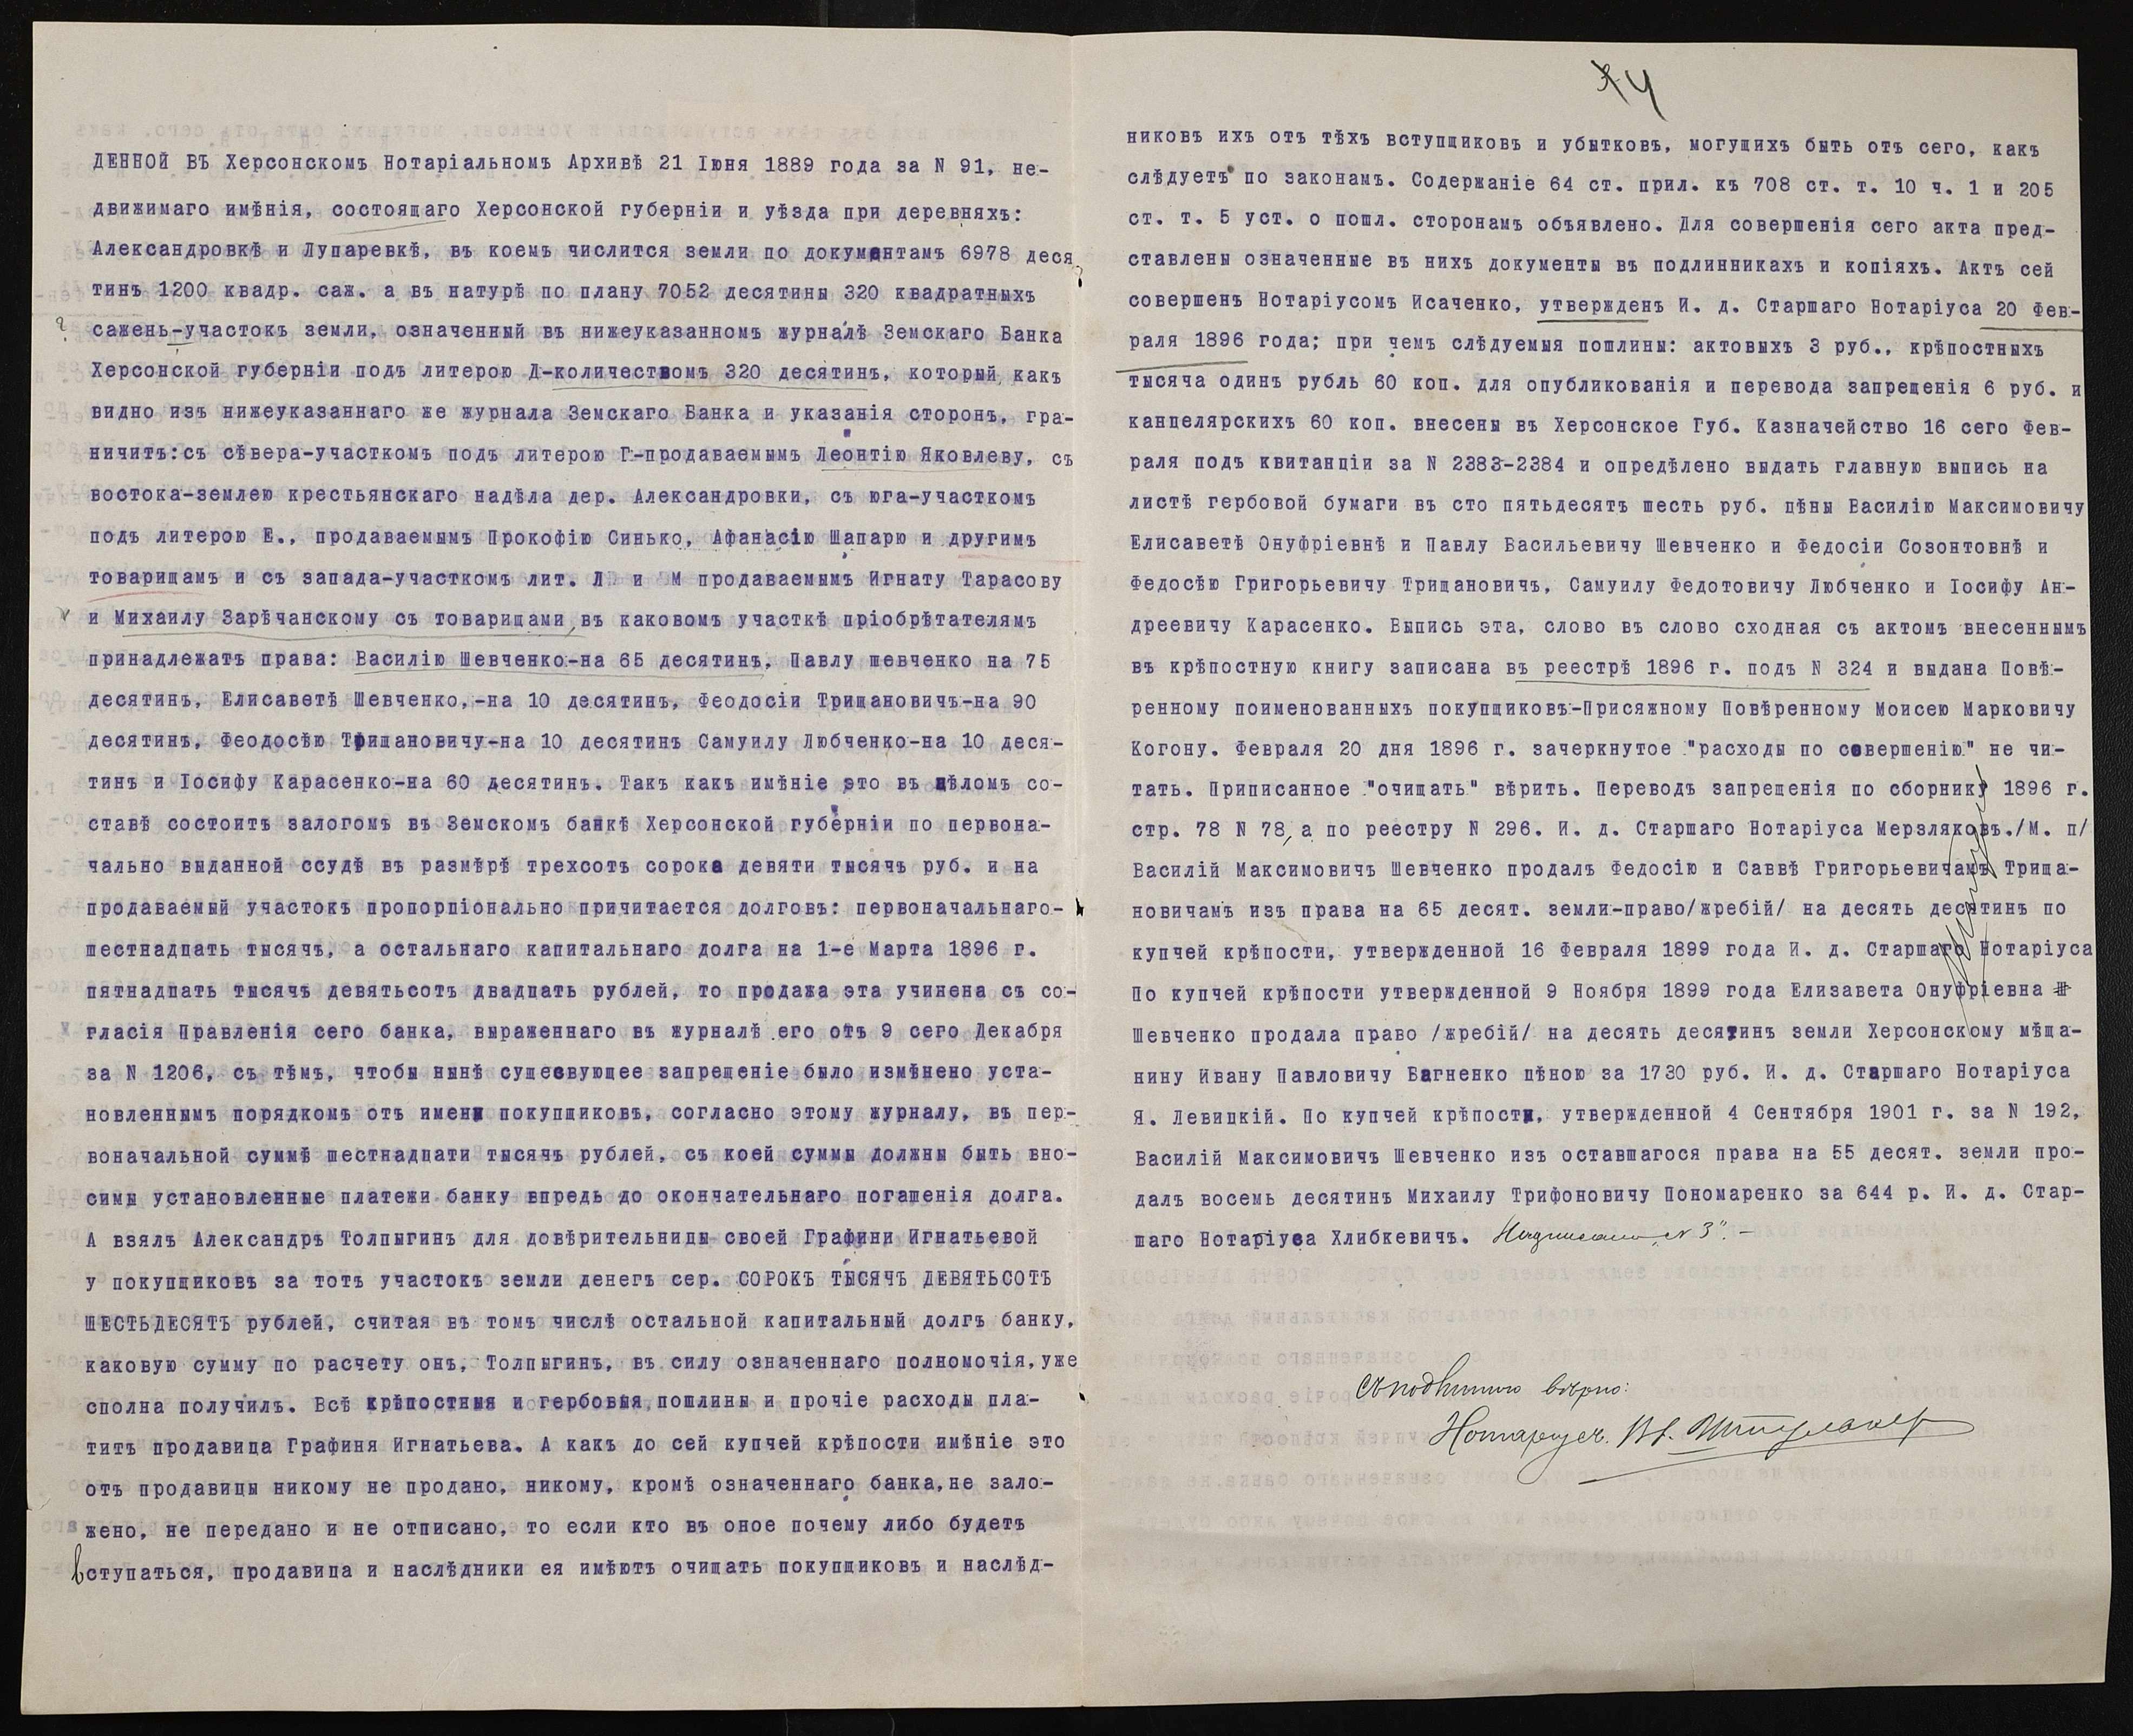 ДЕННОЙ ВЪ Херсонскомъ Нотаріальномъ Архивѣ 21 Іюня 1889 года за N 91, не-
движимаго имѣнія, состоящаго Херсонской губерніи и уѣзда при деревняхъ:
Александровкѣ и Лупаревкѣ, въ коемъ числится земли по документамъ 6978 деся
тинъ 1200 квадр. саж. а въ натурѣ по плану 7052 десятины 320 квадратныхъ
сажень-участокъ земли, означенный въ нижеуказанномъ журналѣ Земскаго Банка
Херсонской губерніи подъ литерою Д-количествомъ 320 десятинъ, который, какъ
видно изъ нижеуказаннаго же журнала Земскаго Банка и указанія сторонъ, гра-
ничитъ:съ сѣвера-участкомъ подъ литерою Г-продаваемымъ Леонтію Яковлеву, съ
востока-землею крестьянскаго надѣла дер. Александровки, съ юга-участкомъ
подъ литерою Е., продаваемымъ Прокофію Синько, Афанасію Шапарю и другимъ
товарищамъ и съ запада-участкомъ лит. Л и М продаваемымъ Игнату Тарасову
и Михаилу Зарѣчанскому съ товарищами, въ каковомъ участкѣ пріобрѣтателямъ
принадлежатъ права: Василію Шевченко-на 65 десятинъ, Павлу шевченко на 75
десятинъ, Елисаветѣ Шевченко,-на 10 десятинъ, Феодосіи Трищановичъ-на 90
десятинъ, Феодосѣю Трищановичу-на 10 десятинъ Самуилу Любченко-на 10 деся-
тинъ и Іосифу Карасенко-на 60 десятинъ. Такъ какъ имѣніе это въ цѣломъ со-
ставѣ состоитъ залогомъ въ Земскомъ банкѣ Херсонской губерніи по первона-
чально выданной ссудѣ въ размѣрѣ трехсотъ сорока девяти тысячъ руб. и на
продаваемый участокъ пропорціонально причитается долговъ: первоначальнаго-
шестнадцать тысячъ, а остальнаго капитальнаго долга на 1-е Марта 1896 г.
пятнадцать тысячъ девятьсотъ двадцать рублей, то продажа эта учинена съ со-
гласія Правленія сего банка, выраженнаго въ журналѣ его отъ 9 сего Декабря
за N 1206, съ тѣмъ, чтобы нынѣ сущесвующее запрещеніе было измѣнено уста-
новленнымъ порядкомъ отъ имени покупщиковъ, согласно этому журналу, въ пер-
воначальной суммѣ шестнадцати тысячъ рублей, съ коей суммы должны быть вно-
симы установленные платежи банку впредь до окончательнаго погашенія долга.
А взялъ Александръ Толпыгинъ для довѣрительницы своей Графини Игнатьевой
у покупщиковъ за тотъ участокъ земли денегъ сер. СОРОКЪ ТЫСЯЧЪ ДЕВЯТЬСОТЪ
ШЕСТЬДЕСЯТЪ рублей, считая въ томъ числѣ остальной капитальный долгъ банку,
каковую сумму по расчету онъ, Толпыгинъ, въ силу означеннаго полномочія, уже
сполна получилъ. Всѣ крѣпостныя и гербовыя пошлины и прочіе расходы пла-
титъ продавица Графиня Игнатьева. А какъ до сей купчей крѣпости имѣніе это
отъ продавицы никому не продано, никому, кромѣ означеннаго банка, не зало-
жено, не передано и не отписано, то если кто въ оное почему либо будетъ
вступаться, продавица и наслѣдники ея имѣютъ очищать покупщиковъ и наслѣд-
4
никовъ ихъ отъ тѣхъ вступщиковъ и убытковъ, могущихъ быть отъ сего, какъ
слѣдуетъ по законамъ. Содержаніе 64 ст. прил. къ 708 ст. т. 10 ч. 1 и 205
ст. т. 5 уст. о пошл. сторонамъ объявлено. Для совершенія сего акта пред-
ставлены означенные въ нихъ документы въ подлинникахъ и копіяхъ. Актъ сей
совершенъ Нотаріусомъ Исаченко, утвержденъ И. д. Старшаго Нотаріуса 20 Фев-
раля 1896 года; при чемъ слѣдуемыя пошлины: актовыхъ 3 руб., крѣпостныхъ
тысяча одинъ рубль 60 коп. для опубликованія и перевода запрещенія 6 руб. и
канцелярскихъ 60 коп. внесены въ Херсонское Губ. Казначейство 16 сего Фев-
раля подъ квитанціи за N 2383-2384 и опредѣлено выдать главную выпись на
листѣ гербовой бумаги въ сто пятьдесятъ шесть руб. цѣны Василію Максимовичу
Елисаветѣ Онуфріевнѣ и Павлу Васильевичу Шевченко и Федосіи Созонтовнѣ и
Федосѣю Григорьевичу Трищановичъ, Самуилу Федотовичу Любченко и Іосифу Ан-
дреевичу Карасенко. Выпись эта, слово въ слово сходная съ актомъ внесеннымъ
въ крѣпостную книгу записана въ реестрѣ 1896 г. подъ N 324 и выдана Повѣ-
ренному поименованныхъ покупщиковъ-Присяжному Повѣренному Моисею Марковичу
Когону. Февраля 20 дня 1896 г. зачеркнутое "расходы по совершенію" не чи-
тать. Приписанное "очищать" вѣрить. Переводъ запрещенія по сборнику 1896 г.
стр. 78 N 78, а по реестру N 296. И. д. Старшаго Нотаріуса Мерзляковъ./М. п/
Василій Максимовичъ Шевченко продалъ Федосію и Саввѣ Григорьевичамъ Трища-
новичамъ изъ права на 65 десят. земли-право/жребій/ на десять десятинъ по
купчей крѣпости, утвержденной 16 Февраля 1899 года И. д. Старшаго Нотаріуса
По купчей крѣпости утвержденной 9 Ноября 1899 года Елизавета Онуфріевна
Шевченко продала право /жребій/ на десять десятинъ земли Херсонскому мѣща-
нину Ивану Павловичу Багненко цѣною за 1730 руб. И. д. Старшаго Нотаріуса
Я. Левицкій. По купчей крѣпости, утвержденной 4 Сентября 1901 г. за N 192,
Василій Максимовичъ Шевченко изъ оставшагося права на 55 десят. земли про-
далъ восемь десятинъ Михаилу Трифоновичу Пономаренко за 644 р. И. д. Стар-
шаго Нотаріуса Хлибкевичъ. Надписано "N 3". -
Съ подлиннымъ вѣрно:
Нотаріусъ